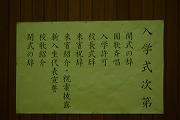 入学式次第
開式の辞
国歌斉唱
入学許可
校長式辞
来賓祝辞
来賓紹介・祝電披露
新入生代表宣誓
校歌紹介
閉式の辞